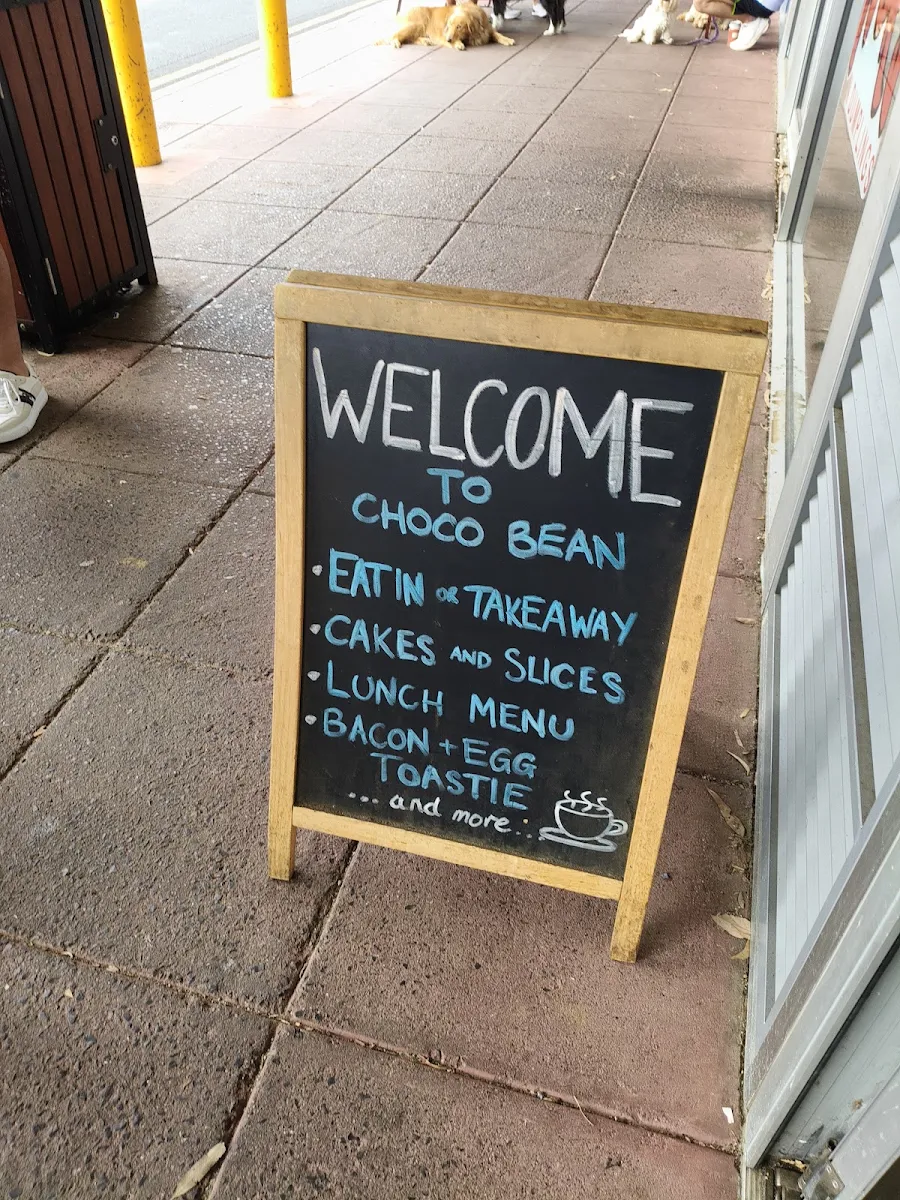 WELCOME
TO
CHOCO BEAN
• EAT IN OR TAKEAWAY
• CAKES AND SLICES
• LUNCH MENU
• BACON + EGG
TOASTIE
... and more...